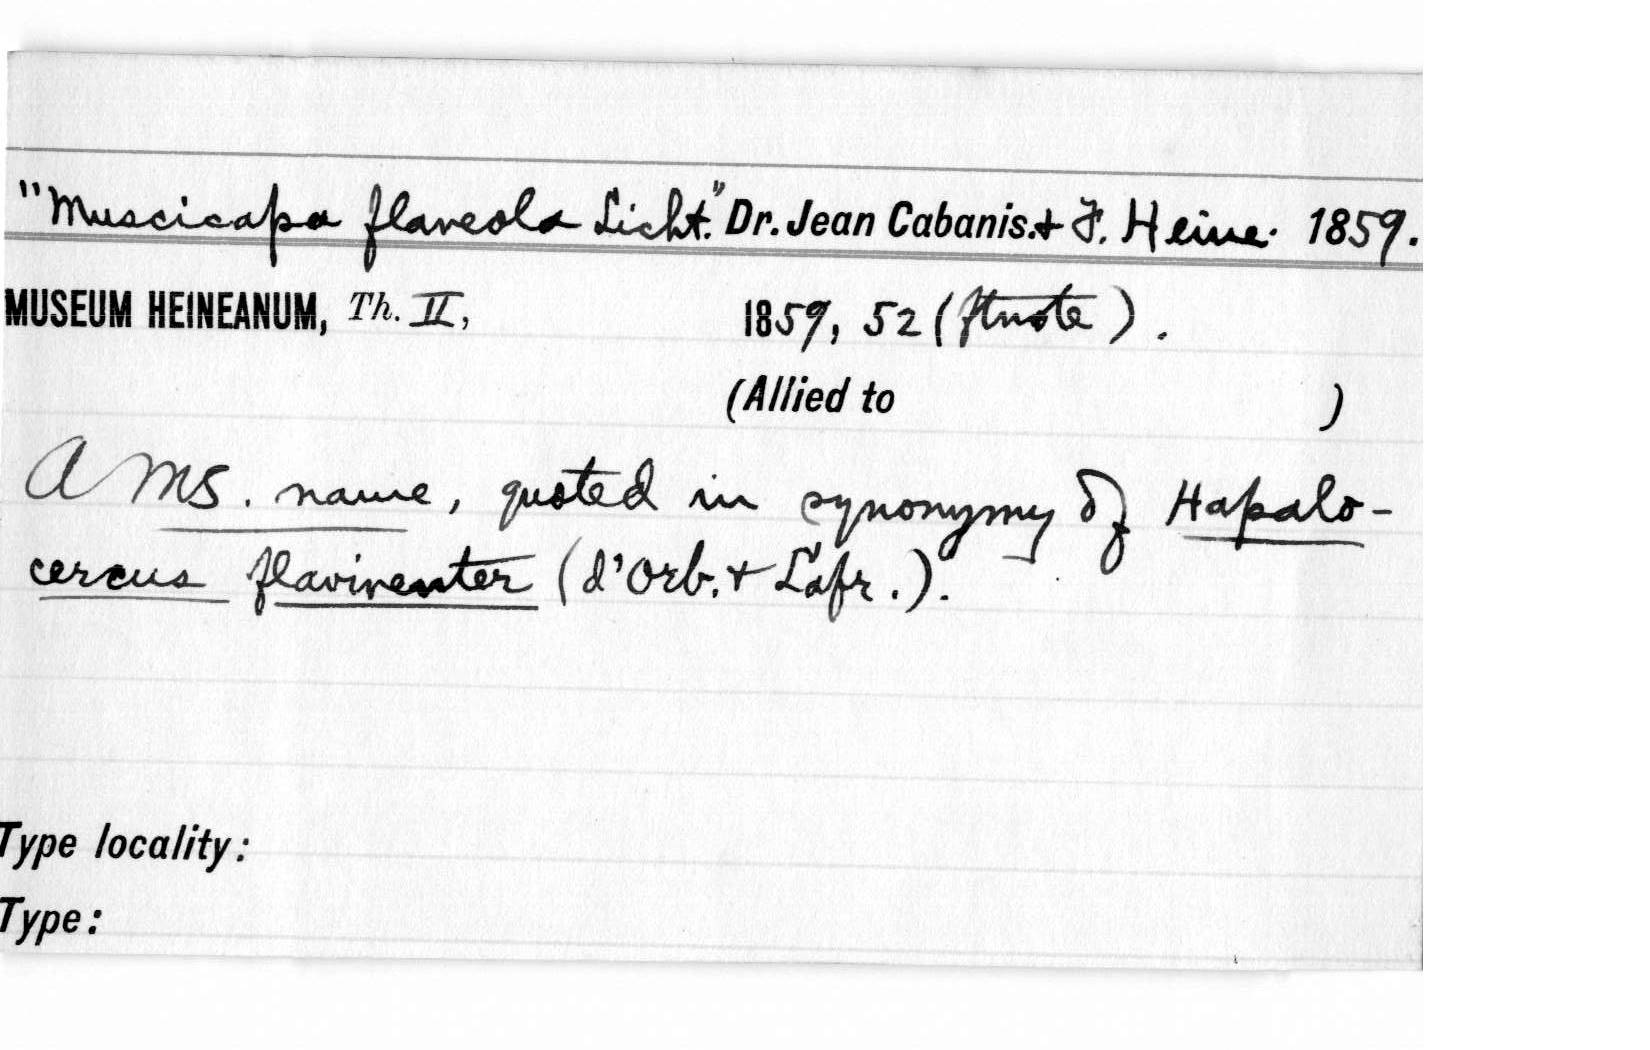 "Muscicapa flaveola Licht." Dr. Jean Cabanis. & F. Heine. 1859.
MUSEUM HEINEANUM, Th. II, 1859, 52 (ftnote).
(Allied to )
A MS. name, quoted in synonymy of Hapalo-
cercus flaviventer (d'Orb. & Lafr.).
Type locality:
Type: